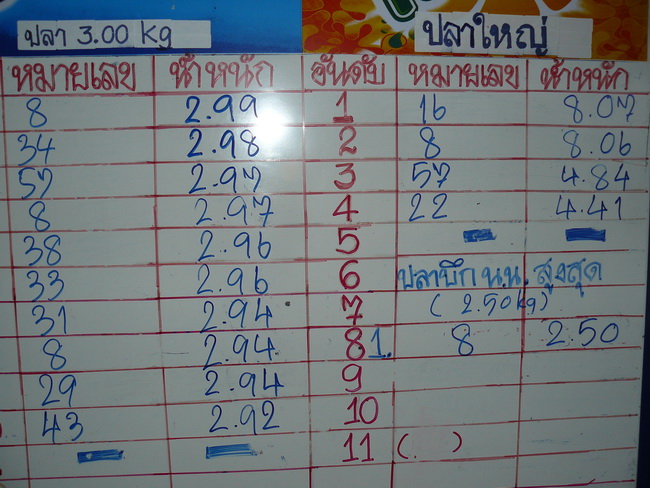 ปลา 3.00 kg ปลาใหญ่
หมายเลข น้ำหนัก อันดับ หมายเลข น้ำหนัก
8 2.99 1 16 8.07
34 2.98 2 8 8.06
57 2.97 3 57 4.84
8 2.97 4 22 4.41
38 2.96 5
33 2.96 6 ปลาบึก น.น. สูงสุด
31 2.94 7 ( 2.50kg)
8 2.94 8 1. 8 2.50
29 2.94 9
43 2.92 10
11 ( )